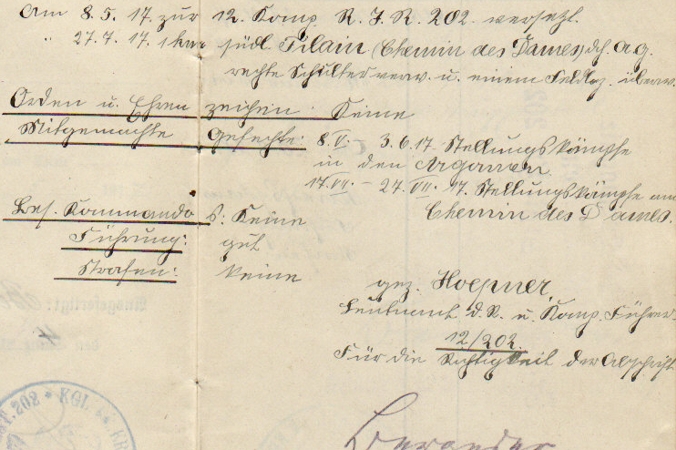 Am 8. 5. 17. zur 12. Komp. R. J. R. 202. versetzt.
" 27. 7. 17. südl. Filain (Chemin des Dames) dch. A. G.
rechte Schulter verw. u. einem Feldlaz. überw.
Orden u. Ehrenzeichen: Keine
Mitgemachte Gefechte: 8. V. – 3. 6. 17. Stellungskämpfe
in den Argonnen.
17. VII. – 27. VII. 17. Stellungskämpfe am
Chemin des Dames.
Bes. Kommandos: Keine
Führung: gut
Strafen: keine
gez. Hoepner,
Leutnant d. R. u. Komp. Führer.
12/202.
Für die Richtigkeit der Abschrift
T. 202 * KGL.